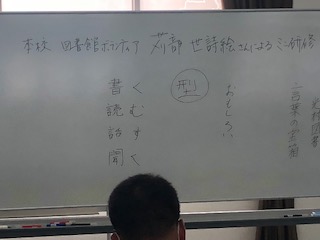 本校 図書館ボランティア 苅部 世詩絵さんによる ミニ研修
光村図書
言葉の宝箱
おもしろい
型
書く
読む
話す
聞く